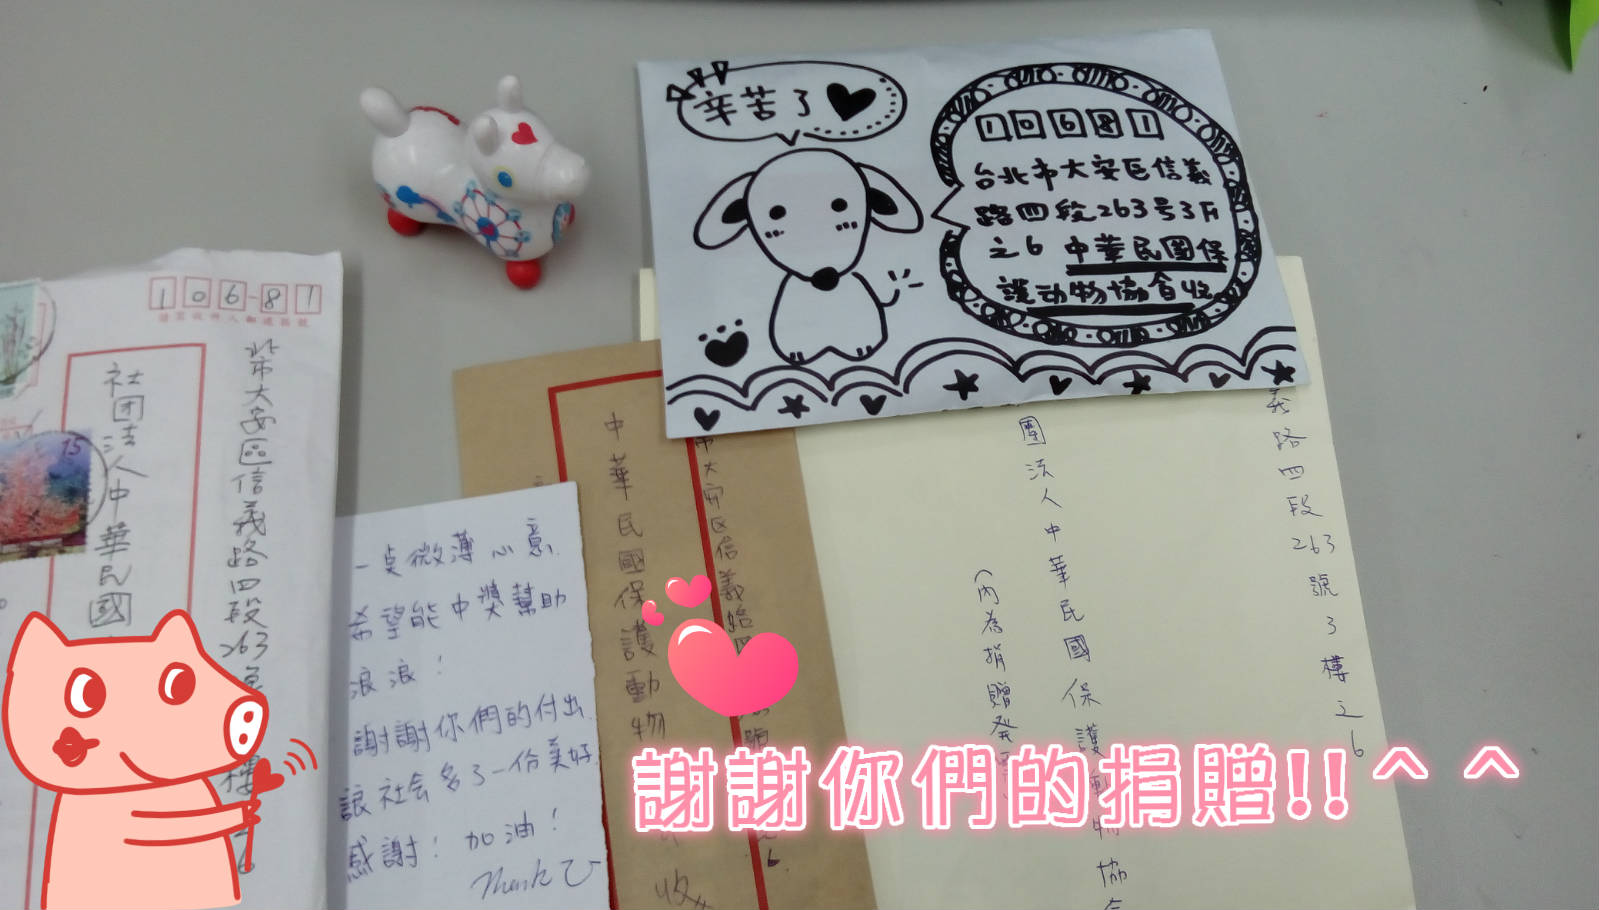 辛苦了
10681
台北市大安区信義
路四段263号3F
之6 中華民國保
護动物協會收
106-81
北市大安區信義路四段263
社团法人中華民國
15
一点微薄心意
希望能中獎幫助
浪浪！
謝謝你們的付出
讓社会多了一份美好
感謝！加油！
Thank
中華民國保護動物
收
市大安区信義路四
義路四段263號3樓之6
團法人中華民國保護動物協會
(內為捐贈發
謝謝你們的捐贈!!^ ^